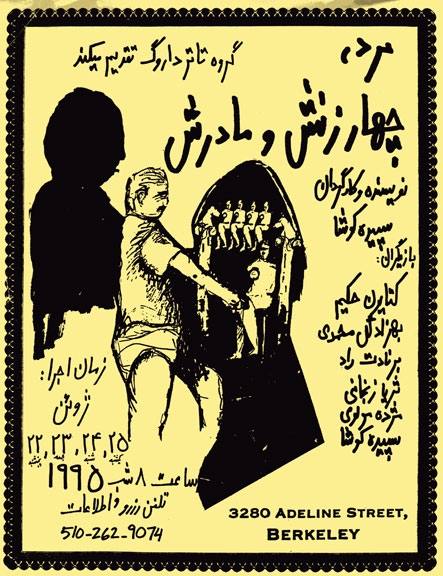 گروه تاتر داروگ تقدیم میکند
مرد،
چهار زنش و مادرش
نویسنده و کارگردان
سپیده کوشا
بازیگران:
کتایون حکیم
بهزاد گل محمدی
برنادت راد
ثریا زنجانی
مژده مولوی
سپیده کوشا
زمان اجرا:
ژوئن
۲۲, ۲۳, ۲۴, ۲۵
۱۹۹۵
ساعت ۸ شب
تلفن رزرو و اطلاعات
510-262-9074
3280 ADELINE STREET,
BERKELEY